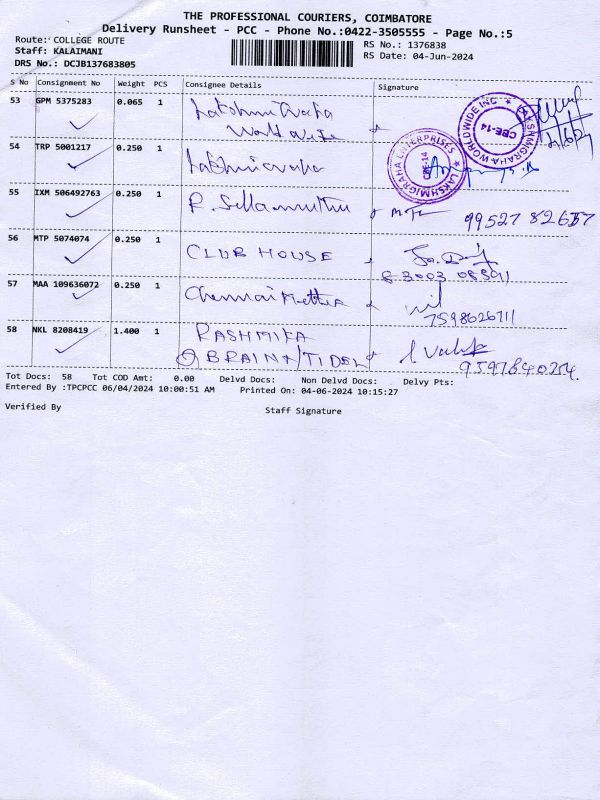 THE PROFESSIONAL COURIERS, COIMBATORE
Delivery Runsheet - PCC - Phone No.:0422-3505555 - Page No.:5
Route: COLLEGE ROUTE
RS No.: 1376838
Staff: KALAIMANI
RS Date: 04-Jun-2024
DRS No.: DCJB137683805
S No Consignment No Weight PCS Consignee Details Signature
53 GPM 5375283 0.065 1 Lakshmi
World wide
LAKSHMIGRAHA WORLDWIDE INC ★ CBE-14
54 TRP 5001217 0.250 1
LAKSHMIGRAHA ENTERPRISES ★ CBE-14
55 IXM 506492763 0.250 1 P. Sellamuthu
56 MTP 5074074 0.250 1 CLUB HOUSE
57 MAA 109636072 0.250 1 Chennai
7598626711
58 NKL 8208419 1.400 1 RASHMIKA
BRAIN / TIDEL
9597840254.
Tot Docs: 58 Tot COD Amt: 0.00 Delvd Docs: Non Delvd Docs: Delvy Pts:
Entered By :TPCPCC 06/04/2024 10:00:51 AM Printed On: 04-06-2024 10:15:27
Verified By Staff Signature